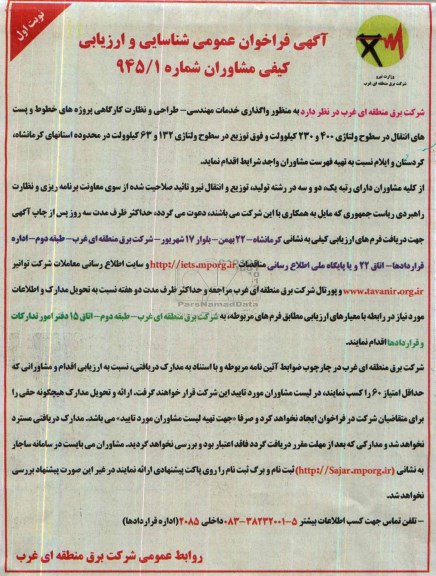 نوبت اول
آگهی فراخوان عمومی شناسایی و ارزیابی
کیفی مشاوران شماره ۹۴۵/۱
وزارت نیرو
شرکت برق منطقه ای غرب
شرکت برق منطقه ای غرب در نظر دارد به منظور واگذاری خدمات مهندسی- طراحی و نظارت کارگاهی پروژه های خطوط و پست
های انتقال در سطوح ولتاژی ۴۰۰ و ۲۳۰ کیلوولت و فوق توزیع در سطوح ولتاژی ۱۳۲ و ۶۳ کیلوولت در محدوده استانهای کرمانشاه،
کردستان و ایلام نسبت به تهیه فهرست مشاوران واجد شرایط اقدام نماید.
از کلیه مشاوران دارای رتبه یک، دو و سه در رشته تولید، توزیع و انتقال نیرو تائید صلاحیت شده از سوی معاونت برنامه ریزی و نظارت
راهبردی ریاست جمهوری که مایل به همکاری با این شرکت می باشند، دعوت می گردد، حداکثر ظرف مدت سه روز پس از چاپ آگهی
جهت دریافت فرم های ارزیابی کیفی به نشانی کرمانشاه- ۲۲ بهمن- بلوار ۱۷ شهریور- شرکت برق منطقه ای غرب- طبقه دوم- اداره
قراردادها- اتاق ۲۲ و یا پایگاه ملی اطلاع رسانی مناقصات http://iets.mporg.ir و سایت اطلاع رسانی معاملات شرکت توانیر
www.tavanir.org.ir و پورتال شرکت برق منطقه ای غرب مراجعه و حداکثر ظرف مدت دو هفته نسبت به تحویل مدارک و اطلاعات
مورد نیاز در رابطه با معیارهای ارزیابی مطابق فرم های مربوطه، به شرکت برق منطقه ای غرب- طبقه دوم- اتاق ۱۵ دفتر امور تدارکات
و قراردادها اقدام نمایند.
شرکت برق منطقه ای غرب در چارچوب ضوابط آئین نامه مربوطه و با استناد به مدارک دریافتی، نسبت به ارزیابی اقدام و مشاورانی که
حداقل امتیاز ۶۰ را کسب نمایند، در لیست مشاوران مورد تایید این شرکت قرار خواهند گرفت. ارائه و تحویل مدارک هیچگونه حقی را
برای متقاضیان شرکت در فراخوان ایجاد نخواهد کرد و صرفا «جهت تهیه لیست مشاوران مورد تایید» می باشد. مدارک دریافتی مسترد
نخواهد شد و مدارکی که بعد از مهلت مقرر دریافت گردد فاقد اعتبار بود و بررسی نخواهد گردید. مشاوران می بایست در سامانه ساجار
به نشانی (http://Sajar.mporg.ir) ثبت نام و برگ ثبت نام را روی پاکت پیشنهادی ارائه نمایند در غیر این صورت پیشنهاد بررسی
نخواهد شد.
- تلفن تماس جهت کسب اطلاعات بیشتر ۵-۳۸۲۳۲۰۰۱-۰۸۳ داخلی ۲۰۸۵ (اداره قراردادها)
روابط عمومی شرکت برق منطقه ای غرب
ParsNamadData